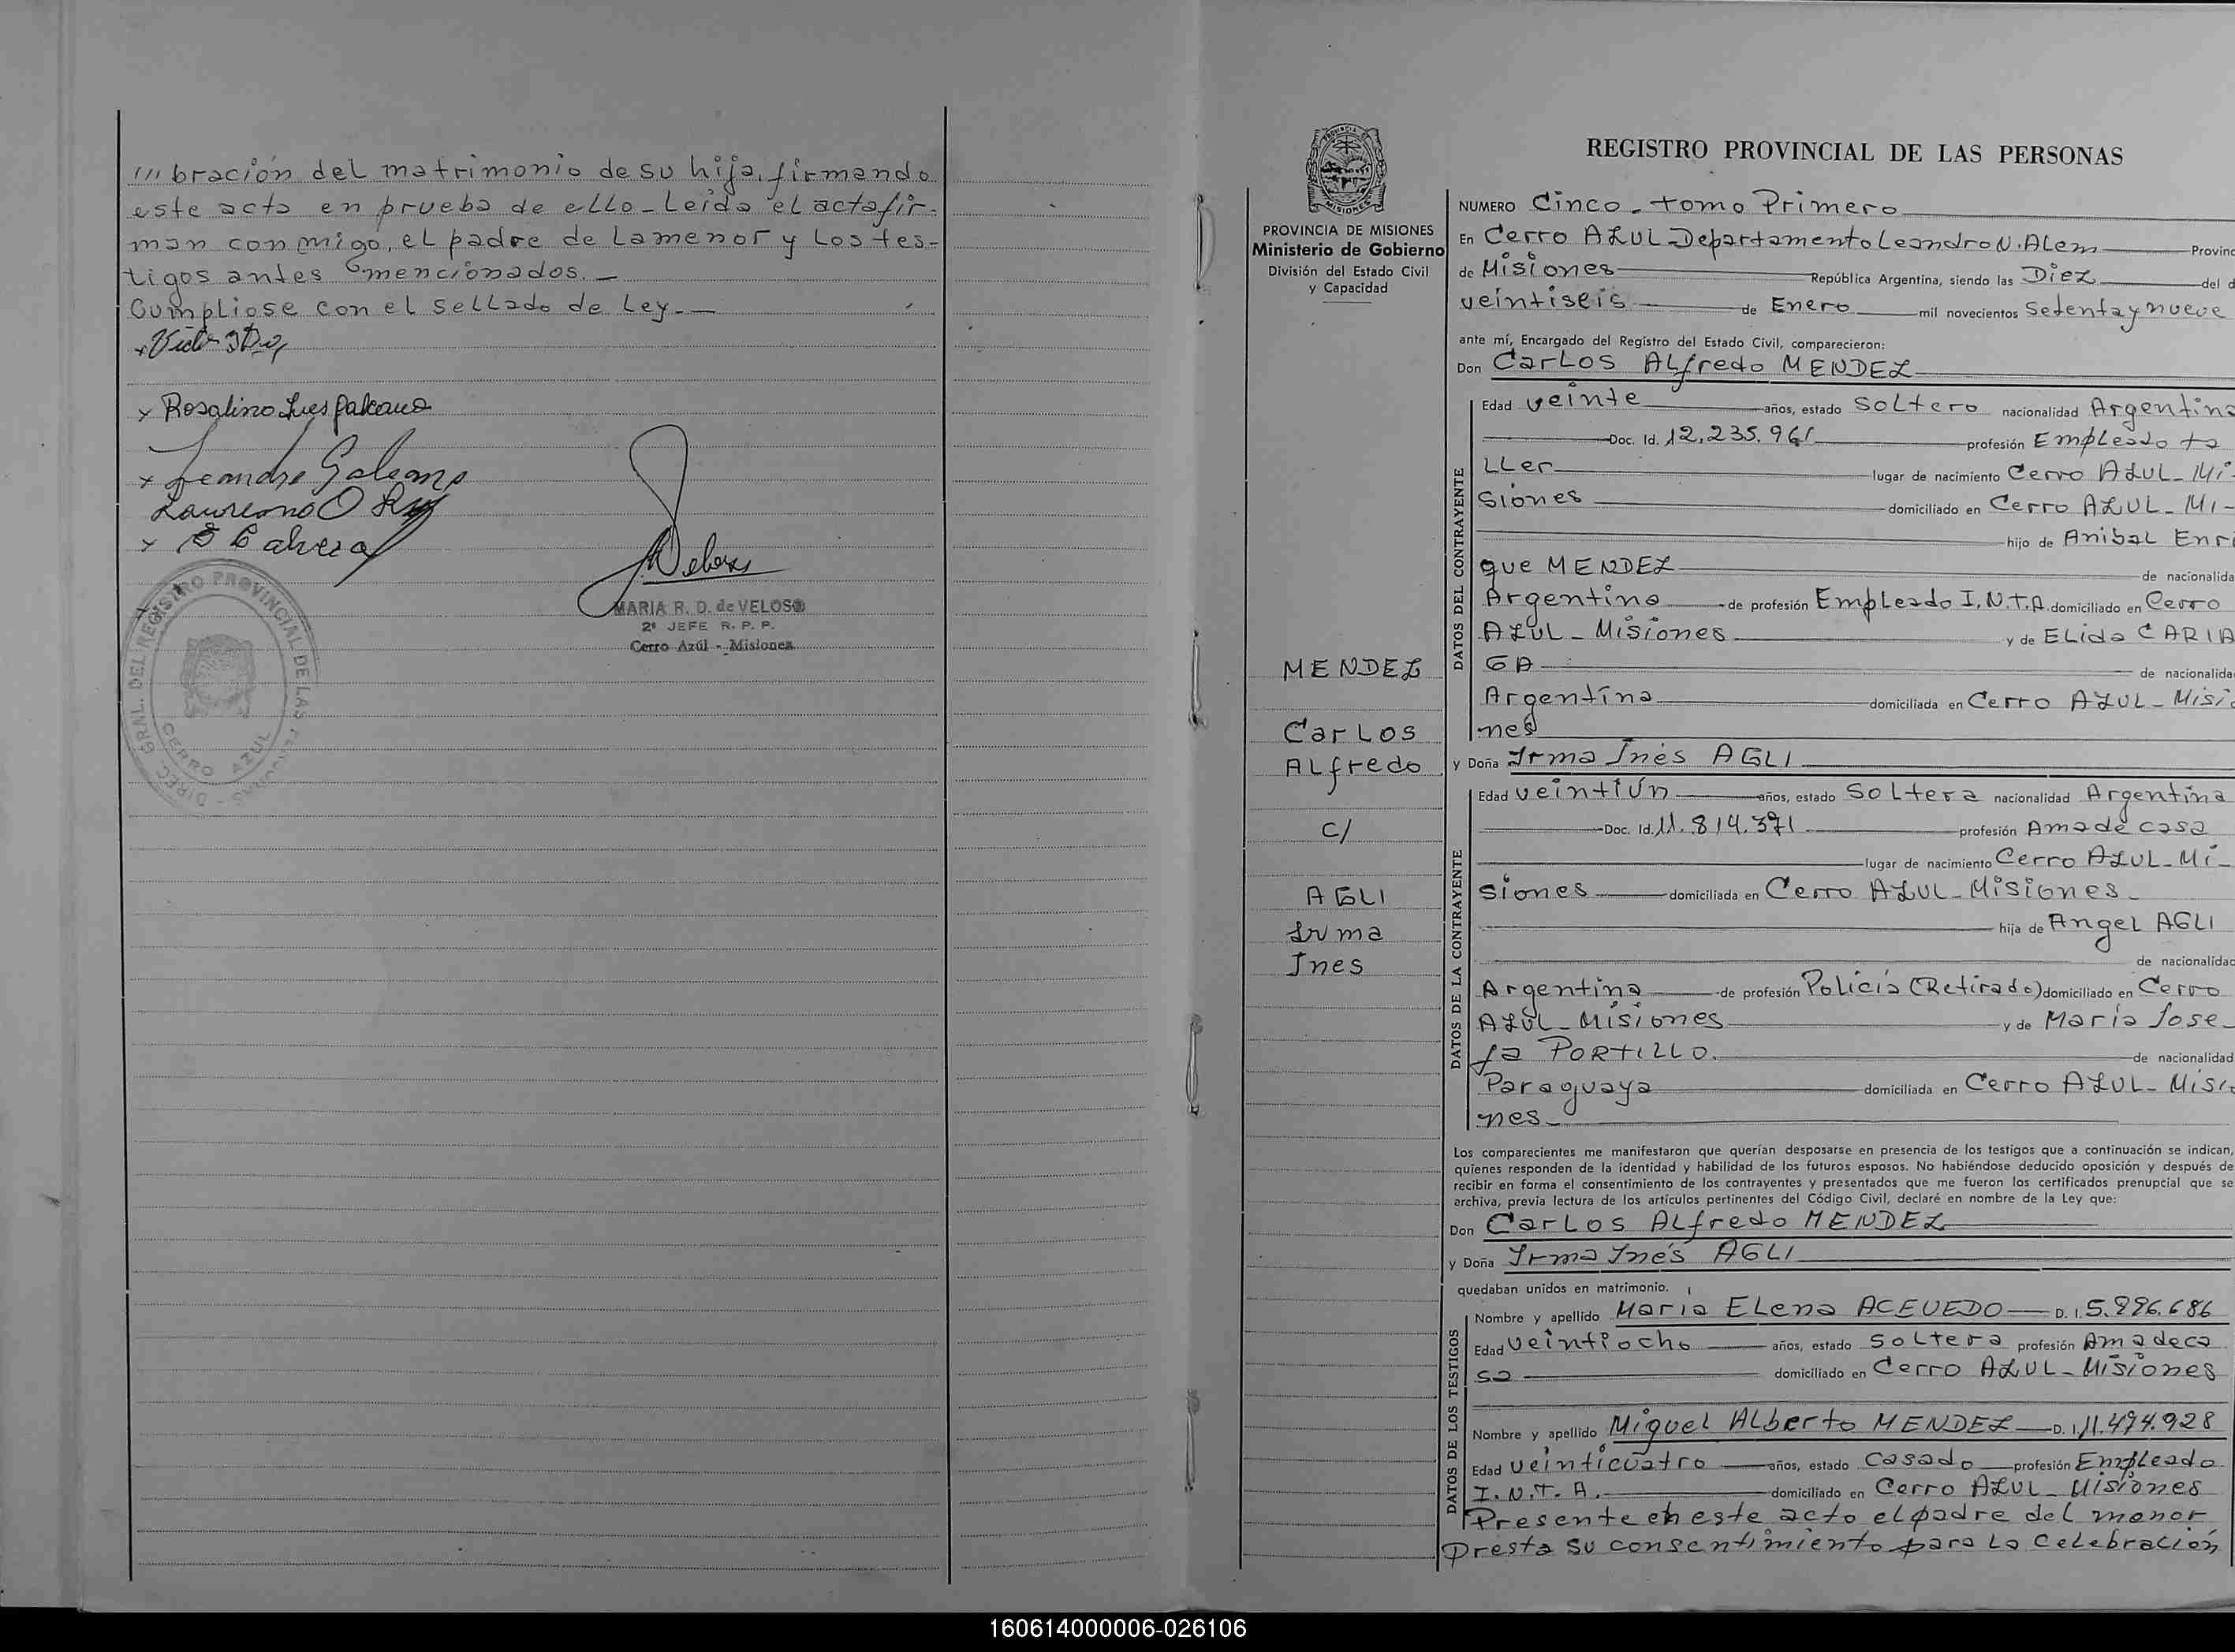 /// bración del matrimonio de su hija, firmando
este acto en prueba de ello - Leida el acta fir-
man conmigo, el padre de la menor y los tes-
tigos antes mencionados. -
Cumpliose con el sellado de Ley. -
x Rosalino
x Leandro Galeano
Laureano O
x
MARIA R. D. de VELOSO
2º JEFE R. P. P.
Cerro Azúl - Misiones
DIREC. GRAL. DEL REGISTRO PROVINCIAL DE LAS PERSONAS -
CERRO AZUL
PROVINCIA DE MISIONES
Ministerio de Gobierno
División del Estado Civil
y Capacidad
MENDEZ
Carlos
Alfredo
c/
AGLI
Irma
Ines
REGISTRO PROVINCIAL DE LAS PERSONAS
NUMERO Cinco - tomo Primero
En Cerro AZUL Departamento Leandro N. Alem Provinc
de Misiones República Argentina, siendo las Diez del d
veintiseis de Enero mil novecientos Setenta y nueve
ante mí, Encargado del Registro del Estado Civil, comparecieron:
Don Carlos Alfredo MENDEZ
DATOS DEL CONTRAYENTE
Edad veinte años, estado Soltero nacionalidad Argentina
Doc. Id. 12.235.961 profesión Empleado ta
LLer lugar de nacimiento Cerro AZUL - Mi-
siones domiciliado en Cerro AZUL - Mi-
hijo de Anibal Enri
que MENDEZ de nacionalida
Argentina de profesión Empleado I.N.T.A. domiciliado en Cerro
AZUL - Misiones y de ELida CARIA
GA de nacionalida
Argentina domiciliada en Cerro AZUL - Misio
nes
y Doña Irma Inés AGLI
DATOS DE LA CONTRAYENTE
Edad veintiún años, estado Soltera nacionalidad Argentina
Doc. Id. 11.814.371 profesión Ama de casa
lugar de nacimiento Cerro AZUL - Mi-
siones domiciliada en Cerro AZUL - Misiones -
hija de Angel AGLI
de nacionalidad
Argentina de profesión Policía (Retirado) domiciliado en Cerro
AZUL - Misiones y de María Jose-
fa PORTILLO. de nacionalidad
Paraguaya domiciliada en Cerro AZUL - Misio
nes -
Los comparecientes me manifestaron que querían desposarse en presencia de los testigos que a continuación se indican,
quienes responden de la identidad y habilidad de los futuros esposos. No habiéndose deducido oposición y después de
recibir en forma el consentimiento de los contrayentes y presentados que me fueron los certificados prenupcial que se
archiva, previa lectura de los artículos pertinentes del Código Civil, declaré en nombre de la Ley que:
Don Carlos Alfredo MENDEZ
y Doña Irma Inés AGLI
quedaban unidos en matrimonio.
DATOS DE LOS TESTIGOS
Nombre y apellido Maria Elena ACEVEDO D. I. 5.996.686
Edad veintiocho años, estado Soltera profesión Ama de ca
sa domiciliado en Cerro AZUL - Misiones
Nombre y apellido Miguel Alberto MENDEZ D. I. 11.494.928
Edad veinticuatro años, estado Casado profesión Empleado
I.N.T.A. domiciliado en Cerro AZUL - Misiones
Presente en este acto el padre del menor
Presta su consentimiento para la celebración
160614000006-026106